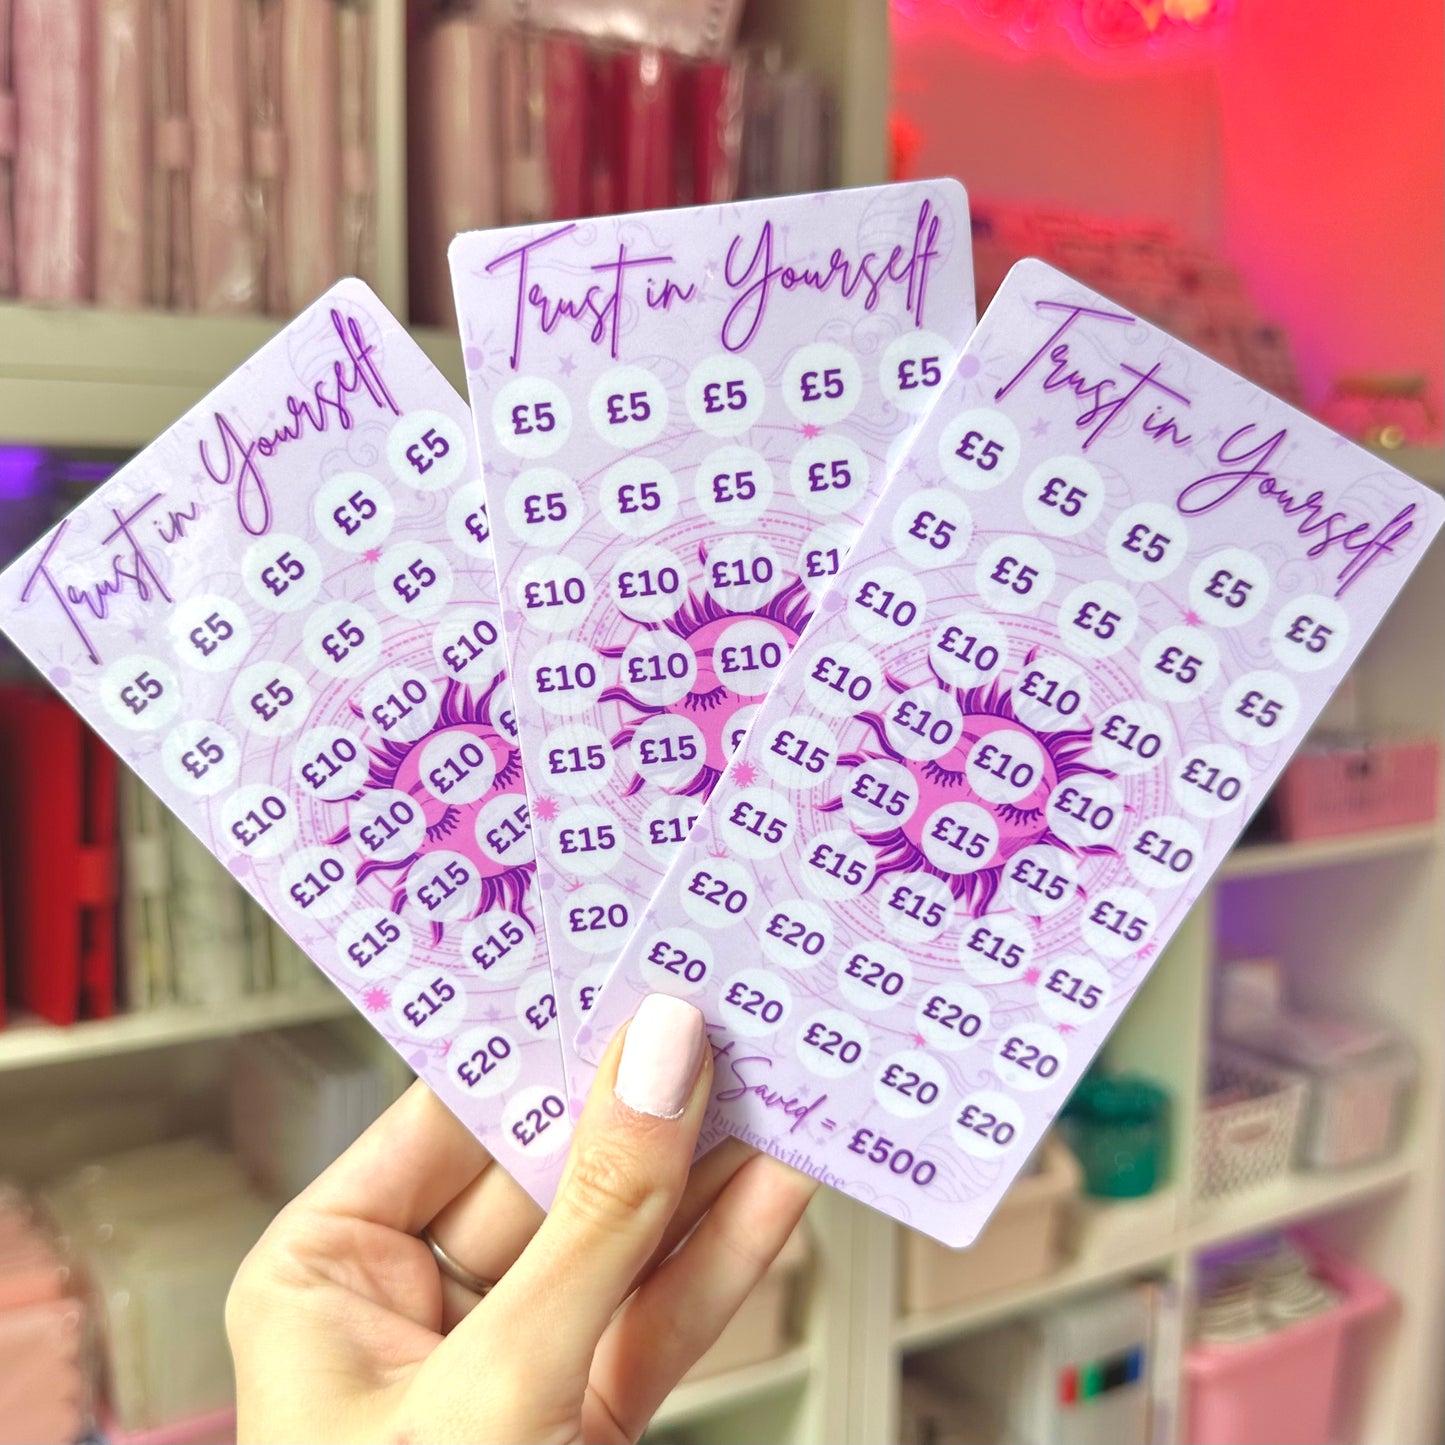 Trust in Yourself
£5 £5 £5 £5 £5
£5 £5 £5 £5
£10 £10 £10 £10
£10 £10 £10
£15 £15 £15
£15 £15
£20
£20
Trust in Yourself
£5 £5 £5 £5 £5
£5 £5 £5 £5
£10 £10 £10
£10 £10 £10
£15 £15
£15
£20
Trust in Yourself
£5 £5 £5 £5 £5
£5 £5 £5 £5 £5
£10 £10 £10 £10 £10
£10 £10 £10 £10 £10
£15 £15 £15 £15 £15
£15 £15 £15 £15 £15
£20 £20 £20 £20 £20
£20 £20 £20 £20 £20
Saved = £500
budgetwithdee